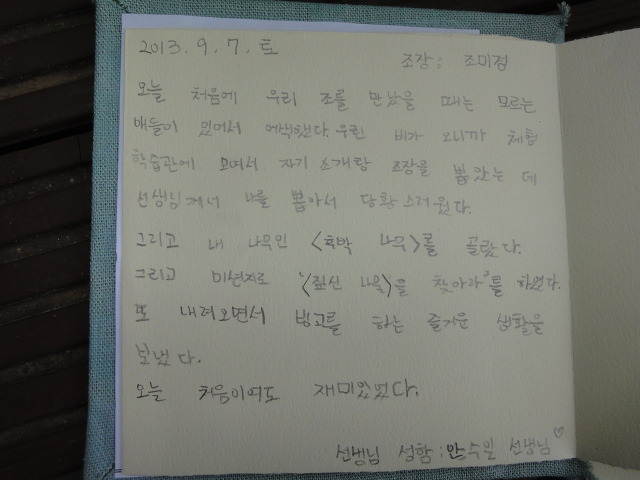 2013. 9. 7. 토
조장: 조미정
오늘 처음에 우리 조를 만났을 때는 모르는
애들이 있어서 어색했다. 우린 비가 오니까 체험
학습관에 모여서 자기 소개랑 조장을 뽑았는데
선생님께서 나를 뽑아서 당황스러웠다.
그리고 내 나무인 <후박 나무>를 골랐다.
그리고 미션지로 '<짚신 나물>을 찾아라'를 하였다.
또 내려오면서 빙고를 하는 즐거운 생활을
보냈다.
오늘 처음이여도 재미있었다.
선생님 성함: 안수일 선생님♡